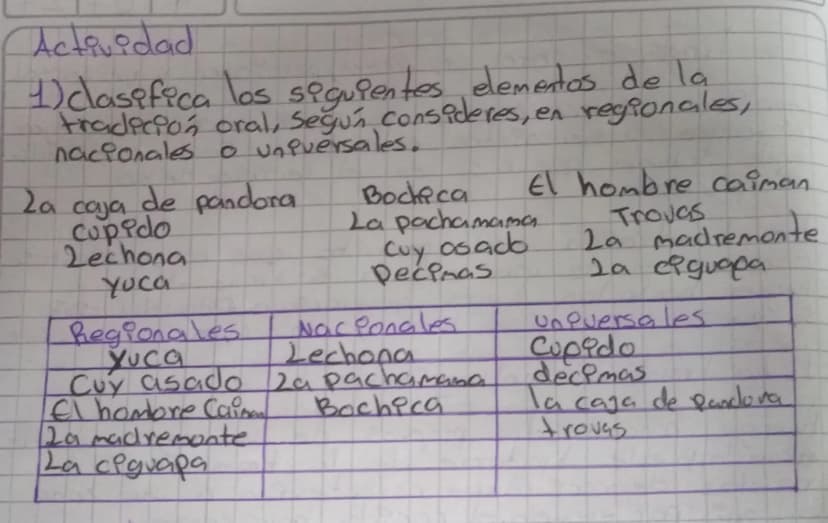 Actividad
1) clasifica los siguientes elementos de la
tradición oral, según consideres, en regionales,
nacionales o universales.
La caja de pandora Bochica El hombre caiman
cupido La pachamama Trovas
Lechona cuy asado La madremonte
yuca Decimas La ciguapa
Regionales Nacionales universales
yuca Lechona Cupido
Cuy asado La pachamama decimas
El hombre Caiman Bochica la caja de Pandora
La madremonte trovas
La ciguapa